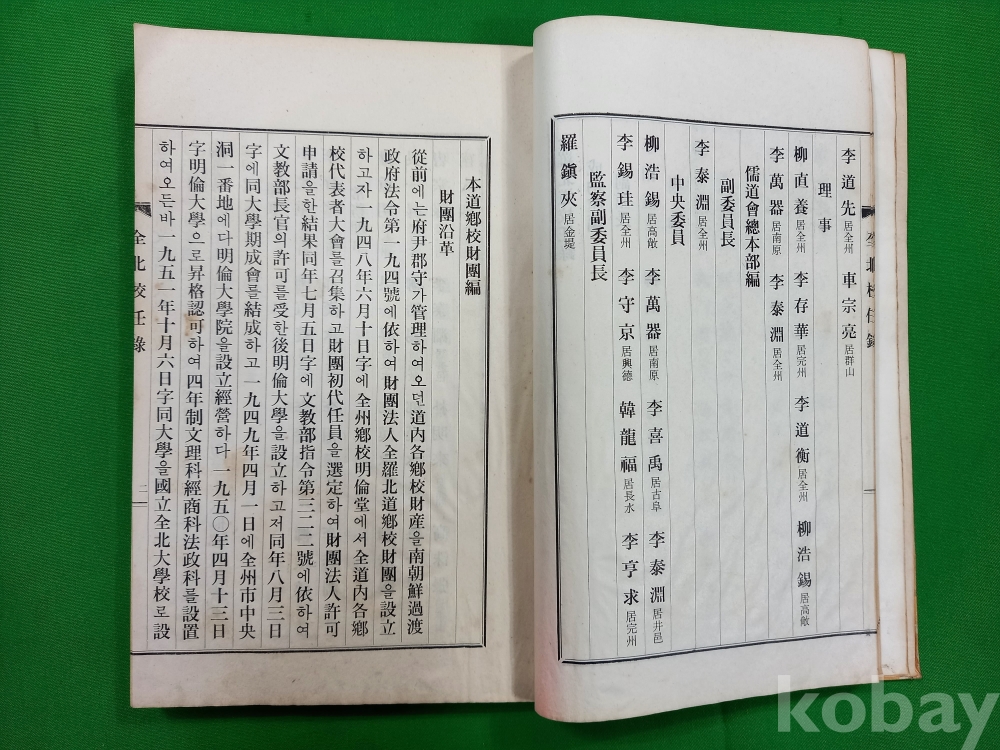 李道先 居全州 車宗亮 居群山
理事
柳直養 居全州 李存華 居完州 李道衡 居全州 柳浩錫 居高敞
李萬器 居南原 李泰淵 居全州
儒道會總本部編
副委員長
李泰淵 居全州
中央委員
柳浩錫 居高敞 李萬器 居南原 李喜禹 居古阜 李泰淵 居井邑
李錫珪 居全州 李守京 居興德 韓龍福 居長水 李亨求 居完州
監察副委員長
羅鎭夾 居金堤
本道鄉校財團編
財團沿革
從前에는府尹郡守가管理하여오던道內各鄉校財産을南朝鮮過渡
政府法令第一九四號에依하여財團法人全羅北道鄉校財團을設立
하고자一九四八年六月十日字에全州鄉校明倫堂에서全道內各鄉
校代表者大會를召集하고財團初代任員을選定하여財團法人許可
申請을한結果同年七月五日字에文教部指令第三二二號에依하여
文教部長官의許可를受한後明倫大學을設立하고저同年八月三日
字에同大學期成會를結成하고一九四九年四月一日에全州市中央
洞一番地에다明倫大學院을設立經營하다一九五〇年四月十三日
字明倫大學으로昇格認可하여四年制文理科經商科法政科를設置
하여오든바一九五一年十月六日字同大學을國立全北大學校로設
全北校任錄
二
kobay